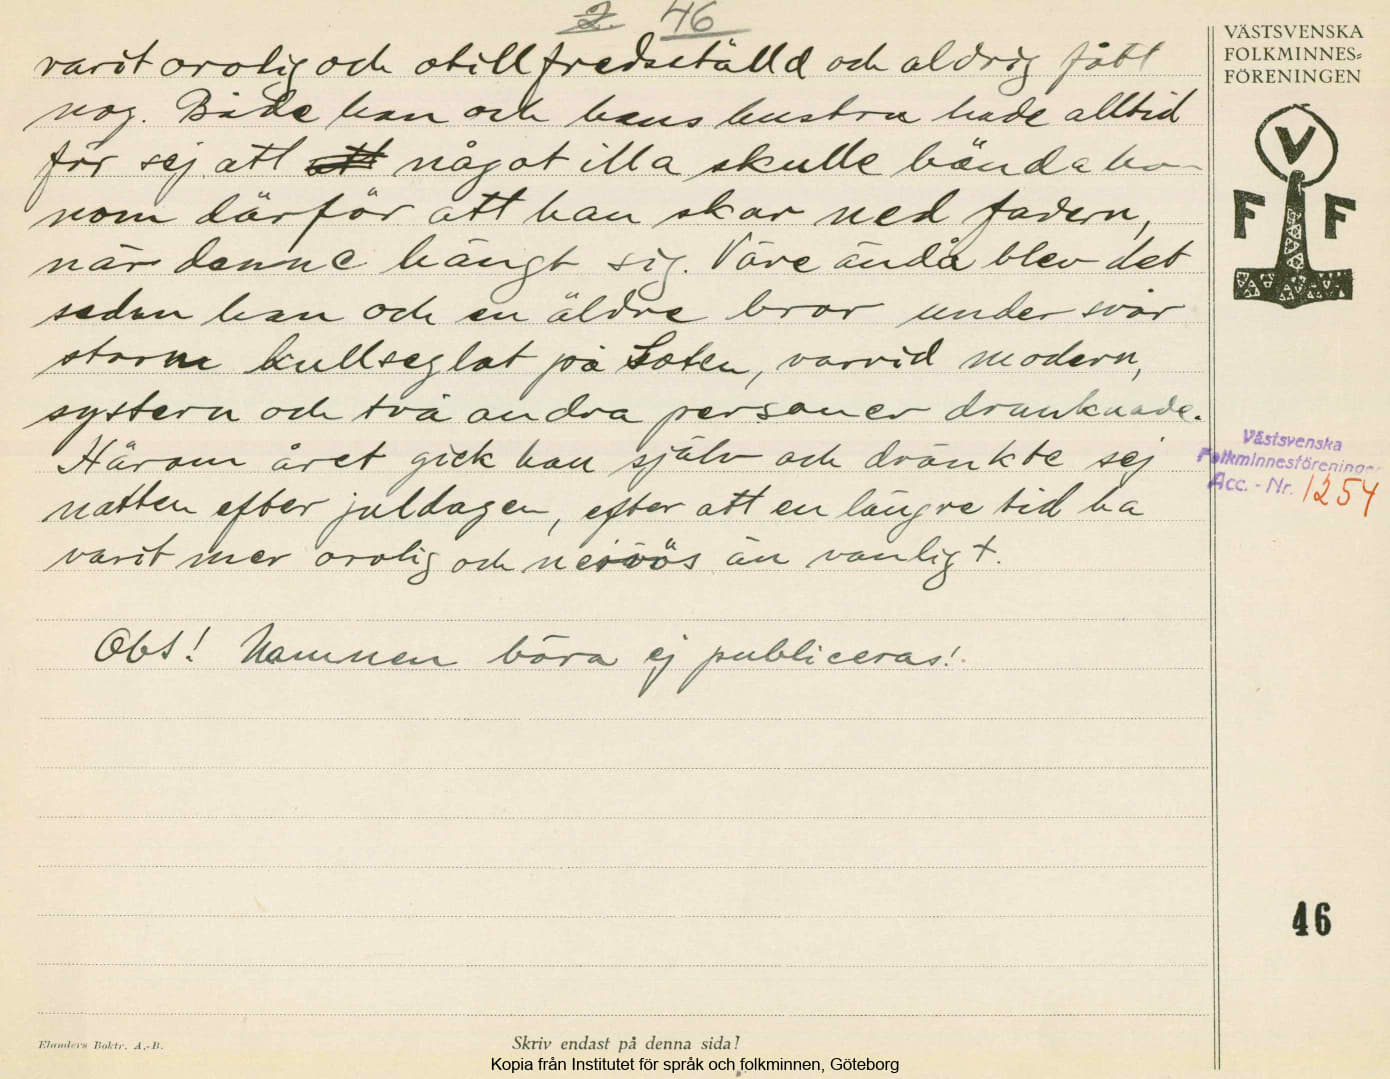 2 46
varit orolig och otillfredsställd och aldrig fått
nog. Både han och hans hustru hade alltid
för sej att att något illa skulle hända ho-
nom därför att han skar ned fadern,
när denne hängt sig. Väre ändå blev det
sedan han och en äldre bror under svår
storm kullseglat på Soten, varvid modern,
systern och två andra personer drunknade.
Härom året gick han själv och dränkte sej
natten efter juldagen, efter att en längre tid ha
varit mer orolig och nervös än vanligt.
Obs! Namnen böra ej publiceras!
VÄSTSVENSKA
FOLKMINNES=
FÖRENINGEN
V
F F
Västsvenska
Folkminnesföreningen
Acc. - Nr. 1254
46
Elanders Boktr. A.-B.
Skriv endast på denna sida!
Kopia från Institutet för språk och folkminnen, Göteborg